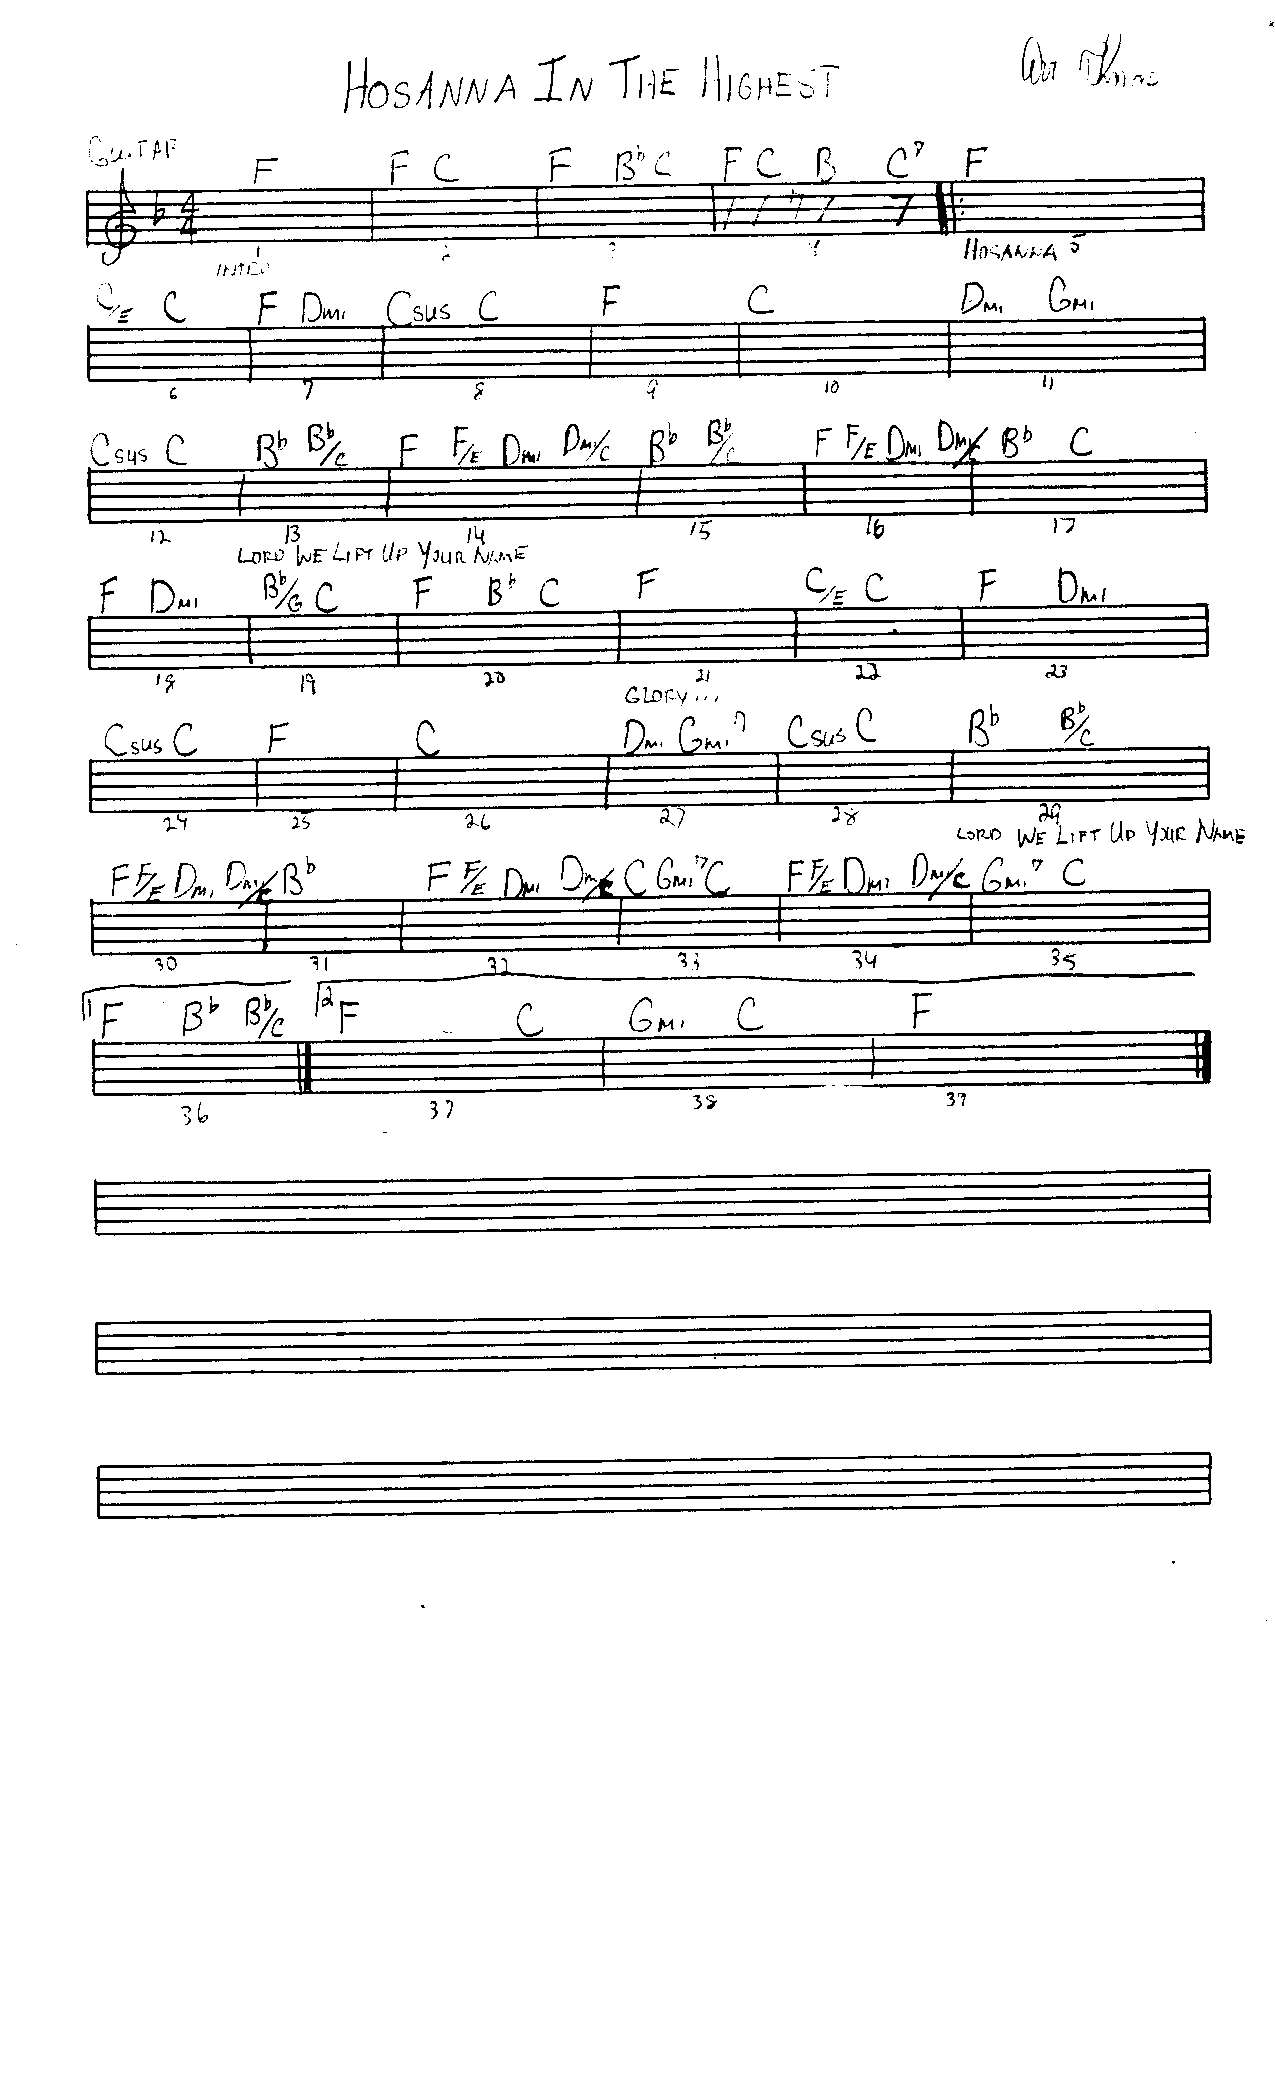 HOSANNA IN THE HIGHEST
GUITAR
F F C F Bb C F C B C7 F
4
4
1 2 3 4 5
INTRO HOSANNA
C/E C F Dmi Csus C F C Dmi Gmi
6 7 8 9 10 11
Csus C Bb Bb/C F F/E Dmi Dmi/C Bb Bb/C F F/E Dmi Dmi/C Bb C
12 13 14 15 16 17
LORD WE LIFT UP YOUR NAME
F Dmi Bb/G C F Bb C F C/E C F Dmi
18 19 20 21 22 23
GLORY...
Csus C F C Dmi Gmi7 Csus C Bb Bb/C
24 25 26 27 28 29
LORD WE LIFT UP YOUR NAME
F F/E Dmi Dmi/C Bb F F/E Dmi Dmi/C C Gmi7 C F F/E Dmi Dmi/C Gmi7 C
30 31 32 33 34 35
1 F Bb Bb/C 2 F C Gmi C F
36 37 38 37